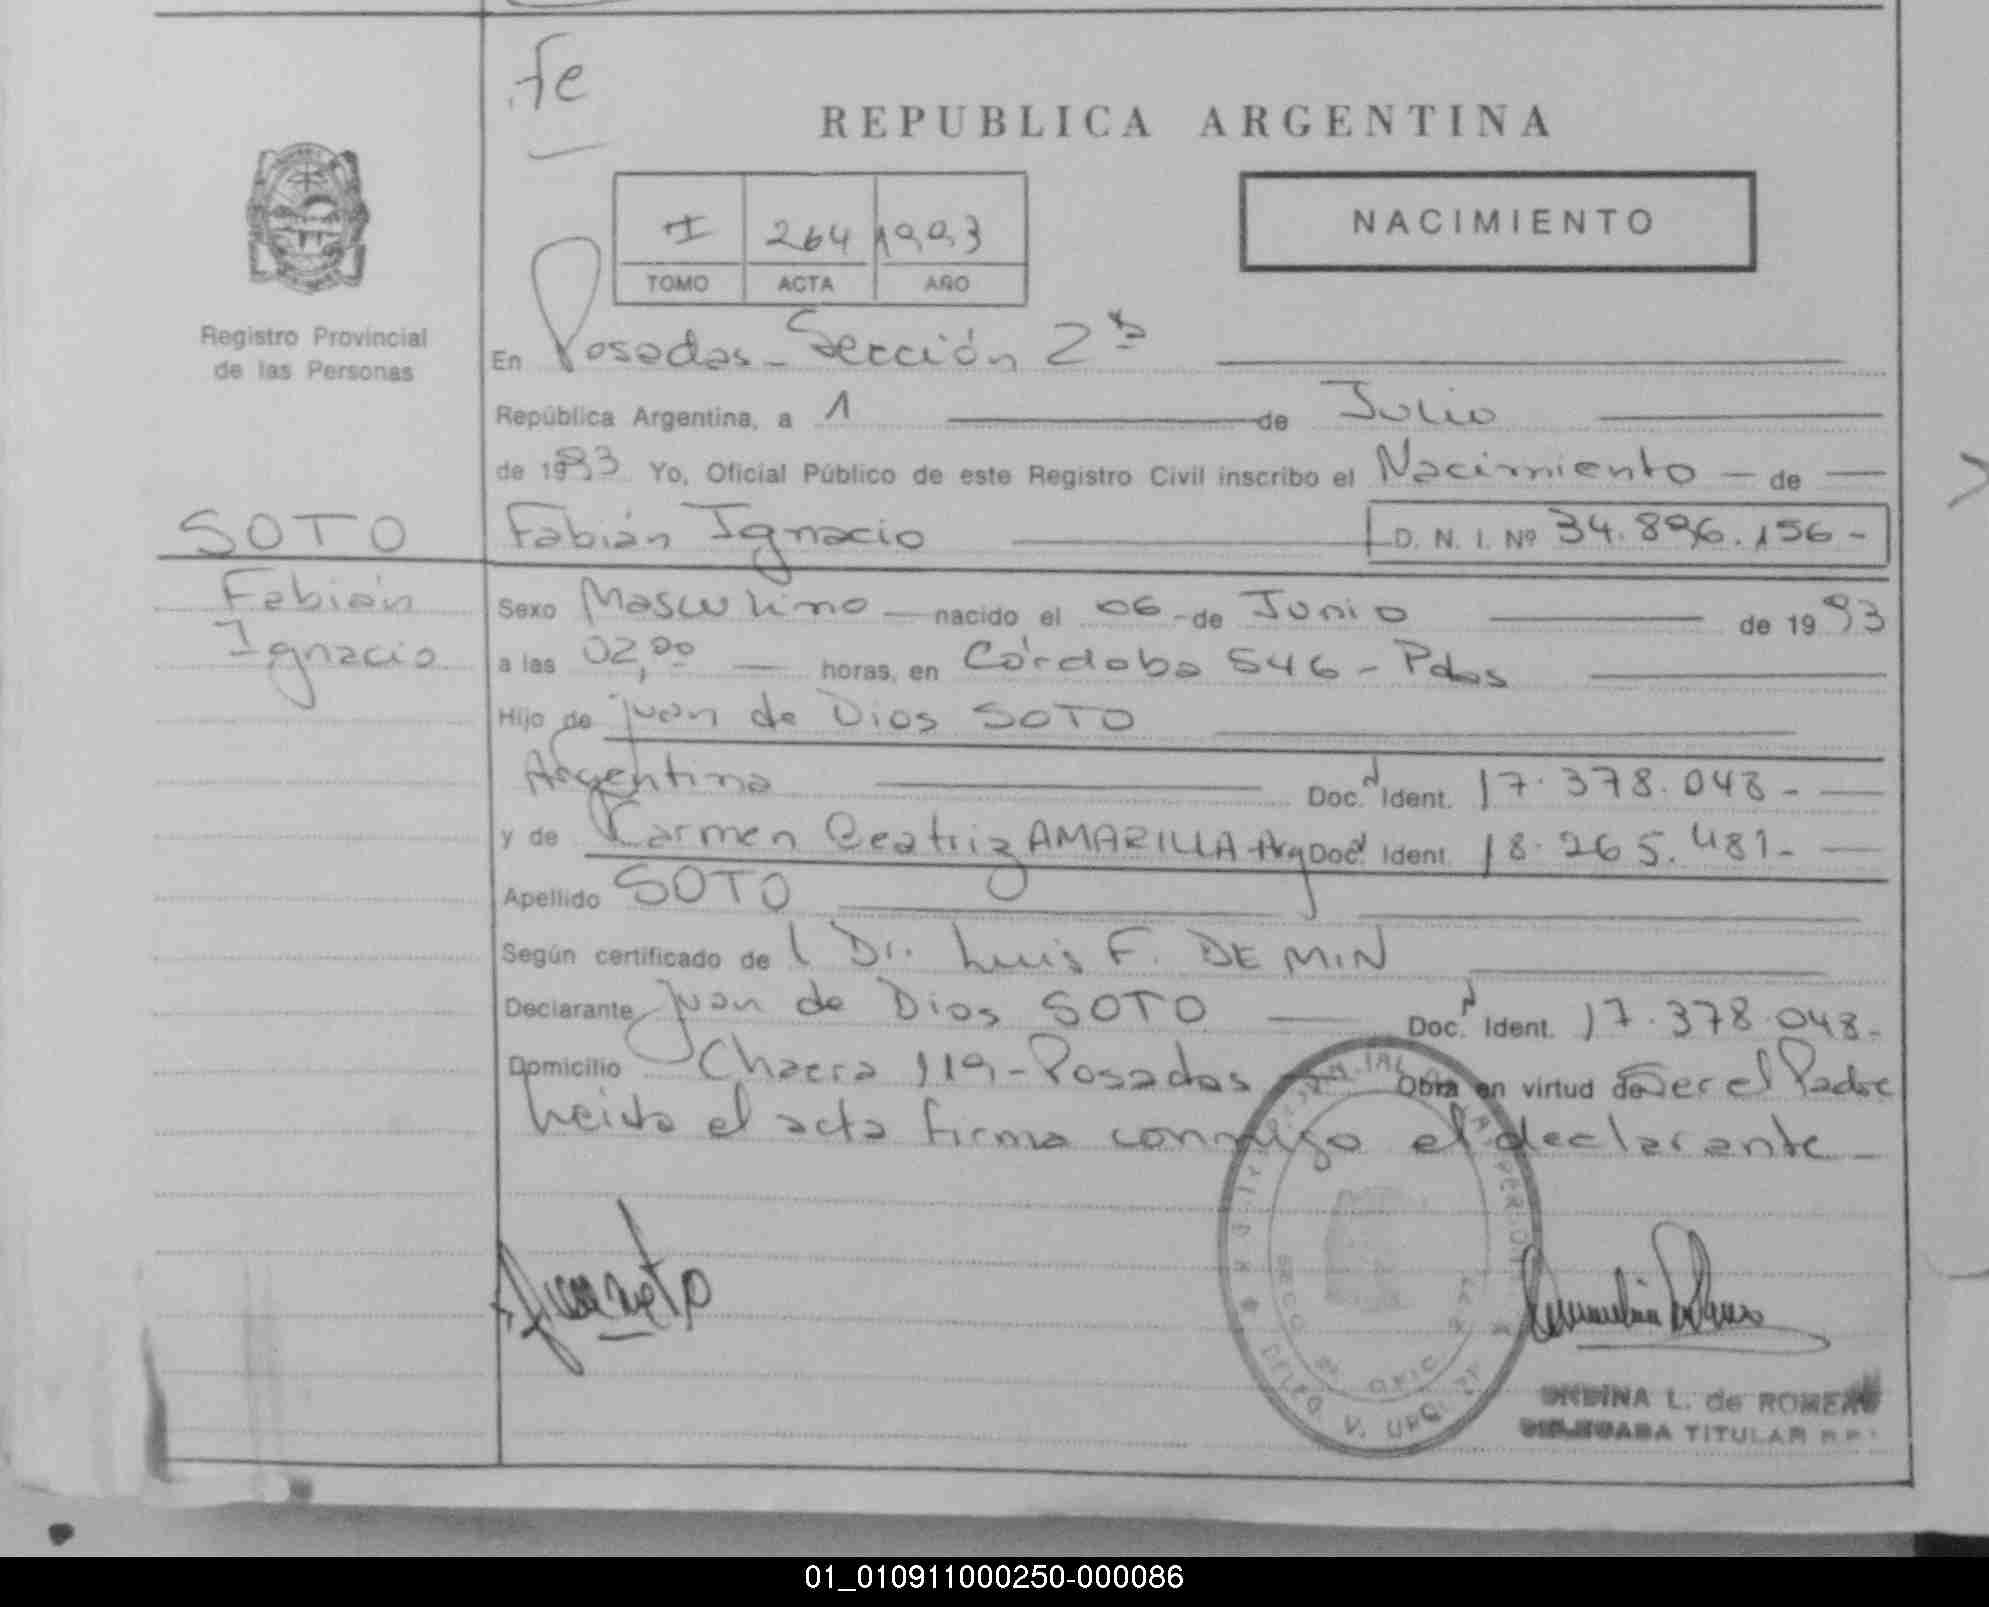 fe
REPUBLICA ARGENTINA
I 264 1993
TOMO ACTA AÑO
NACIMIENTO
Registro Provincial
de las Personas
En Posadas - Sección 2ª
República Argentina, a 1 de Julio
de 1993 Yo, Oficial Público de este Registro Civil inscribo el Nacimiento - de
SOTO
Fabián Ignacio D. N. I. Nº 34.896.156-
Fabián
Ignacio
Sexo Masculino nacido el 06 - de Junio de 1993
a las 02,00 horas, en Córdoba 546 - Pdas
Hijo de Juan de Dios SOTO
Argentina Doc. Ident. 17.378.048-
y de Carmen Beatriz AMARILLA - Arg Doc. Ident. 18.265.481-
Apellido SOTO
Según certificado de l Dr. Luis F. DE MIN
Declarante Juan de Dios SOTO Doc. Ident. 17.378.048-
Domicilio Chacra 119 - Posadas Obra en virtud de Ser el Padre
Leída el acta firma conmigo el declarante -
DELEG. V. URQ.
ONDINA L. de ROMERO
DELEGADA TITULAR R.P.
01_010911000250-000086